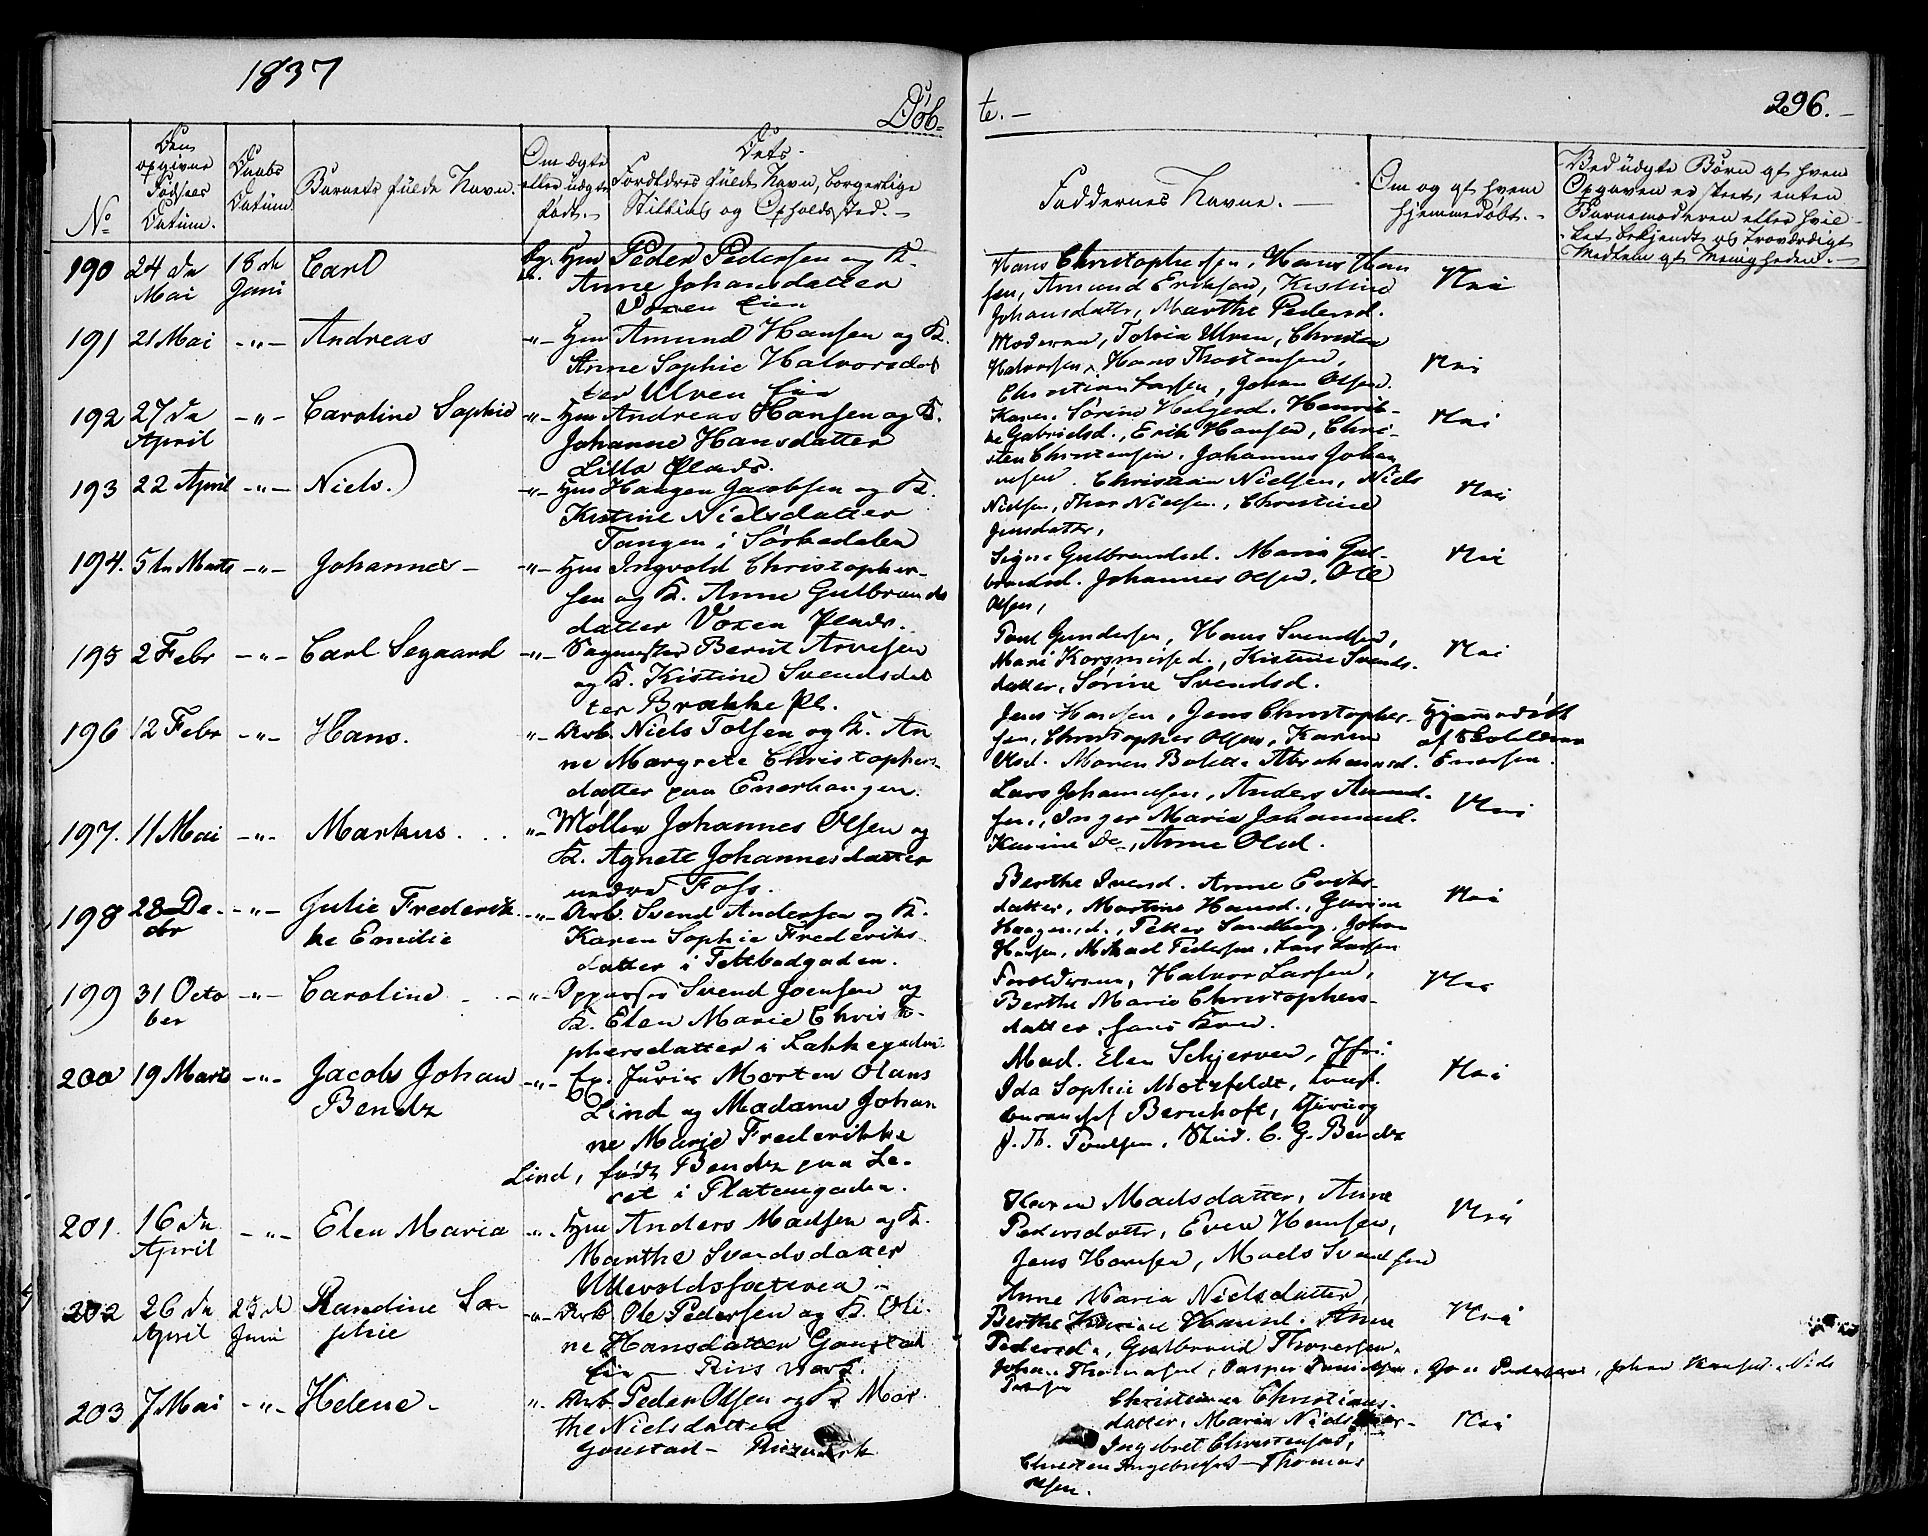 1837
Døb-
te.-
296.-
No
Den
opgivne
Fødsels
Datum.
Daabs
Datum
Barnets fulde Navn.
Om ægte
eller uægte
født.-
Dets
Forældres fulde Navn, borgerlige
Stilling og Opholdssted.-
Faddernes Navne.-
Om og af hvem
hjemmedøbt.-
Ved uægte Børn af hvem
Opgaven er skeet, enten
Barnemoderen eller hvil-
ket bekjendt og troværdigt
Medlem af Menigheden.-
190 24 de Mai 18 de Juni Carl
Hm Peder Pedersen og K.
Anne Johansdatter
Voxen Eie
Hans Christophersen, Hans Han
sen, Amund Eriksen, Kistine
Johansdatter, Marthe Pedersd.
Nei
191 21 Mai -"- Andreas
-"- Hm Amund Hansen og K.
Anne Sophie Halvorsdat
ter Ulven Eie
Moderen, Tolvia Ulven, Christen
Halvorsen, Hans Thostensen,
Christian Larsen, Johan Olsen.
Nei
192 27 de April -"- Caroline Sophie
-"- Hm Andreas Hansen og K.
Johanne Hansdatter
Lilla Plads.
Karen Sørine Helgesd. Henrik-
ke Gabrielsd., Erik Hansen, Chri-
sten Christensen, Johannes Johan
nesen.
Nei
193 22 April -"- Niels.
-"- Hm Haagen Jacobsen og K.
Kistine Nielsdatter
Tangen i Sørkedalen
Christian Nielsen, Niels
Nielsen, Thor Nielsen, Christine
Jensdatter,
Nei
194. 5 te Marts -"- Johannes-
-"- Hm Ingvold Christopher-
sen og K. Anne Gulbrands
datter Voxen Plads.
Signe Gulbrandsd. Maria Gul-
brandsd. Johannes Olsen, Ole
Olsen,
Nei
195 2 Febr -"- Carl Segaard
-"- Sagmester Bernt Arvesen
og K. Kistine Svendsdat
ter Brække Pl.
Poul Gundersen, Hans Svendsen,
Mari Korsmosed., Kistine Svends-
datter, Sørine Svendsd.
Nei
196 12 Febr -"- Hans.
-"- Arb. Niels Tolsen og K. An
ne Margrete Christophers-
datter paa Enerhaugen.
Jens Hansen, Jens Christopher-
sen, Christopher Olsen, Karen
Olsd. Maren Bolette Abrahamsd.
Hjemmedøbt
af
Enersen.
197. 11 Mai -"- Markus.
-"- Møller Johannes Olsen og
K. Agnete Johannesdatter
nedre Foss.
Lars Johannesen, Anders Amund-
sen, Inger Maria Johannesd.
Karine Do, Anne Olsd.
Nei
198 28 De-
cbr -"- Julie Frederik
ke Emilie
-"- Arb. Svend Andersen og K.
Karen Sophie Frederiks-
datter i Fettbadgaden.
Berthe Svend. Anne Eriks-
datter, Martine Hansd., Gurine
Haagensd., Peter Sandberg, Johan
Hansen, Michael Pedersen, Lars Larsen
Nei
199 31 Octo
ber -"- Caroline
-"- Oppasser Svend Joensen og
K. Elen Marie Christo-
phersdatter i Lakkegaden.
Forældrene, Halvor Larsen,
Berthe Marie Christophers-
datter,
Nei
200 19 Marts -"- Jacob Johan
Bendz
-"- Ex. Juris Morten Olaus
Lind og Madame Johan
ne Marie Frederikke
Lind, født Bendz paa Le-
ret i Platougaden.
Mad. Elen Schjerven, Jfr.
Ida Sophie Motzfeldt,
Bernhoft, Chirurg
J. Th. Poulsen, Stud. C. G. Bendz
Nei
201. 16 de April -"- Elen Maria
-"- Hm Anders Madsen og K.
Marthe Svendsdatter
Ullevoldsæteren
Karen Madsdatter, Anne
Pedersdatter, Even Hansen,
Jens Hansen, Mads Svendsen
Nei
202 26 de April 25 de Juni Randine So-
phie
-"- Arb. Ole Pedersen og K. Oli-
ne Hansdatter Goustad
Eie - Riis Værk.
Anne Maria Nielsdatter,
Berthe Karine Hansd. Anne
Pedersd., Gulbrand Thoresen,
Nei
203 7 Mai -"- Helene-
-"- Arb. Peder Olsen og K. Mar-
the Nielsdatter
Goustad- Riisværk
Christiane Christians-
datter, Maria Niels
Ingebret Christensen,
Christen Ingebretsen - Thomas
Olsen.
Nei